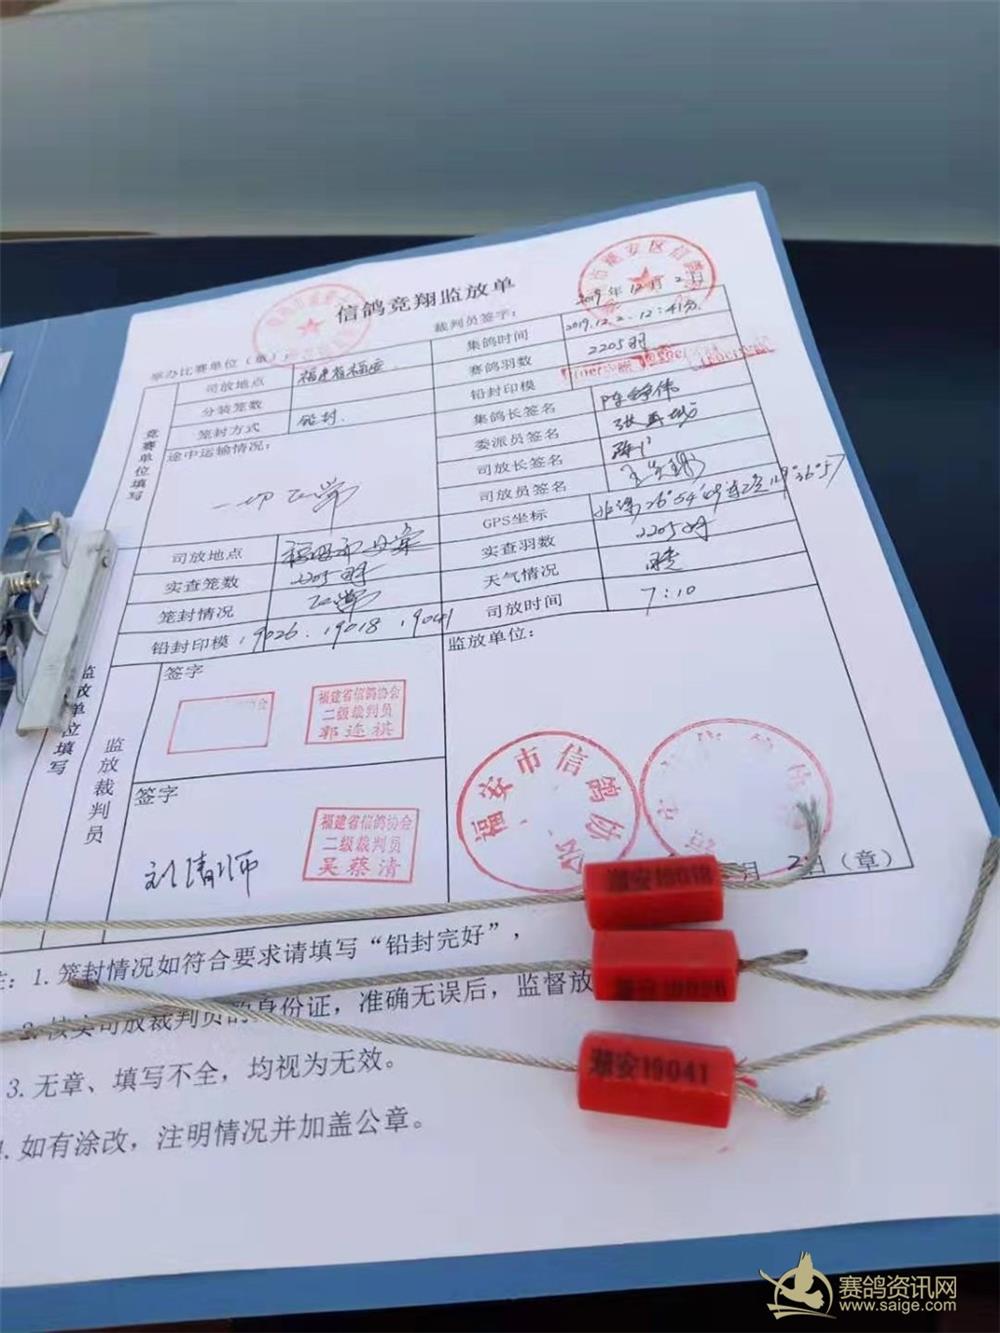 信鸽竞翔监放单
举办比赛单位（章）： 裁判员签字： 2019年12月2日
竞赛单位填写
司放地点 福建省福安 集鸽时间 2019.12.2.12:41分
分装笼数 赛鸽羽数 2205羽
笼封方式 铅封. 铅封印模
途中运输情况： 集鸽长签名
一切正常 委派员签名
司放长签名
司放员签名
GPS坐标 北纬26°54′
司放地点 实查羽数 2205羽
实查笼数 2205羽 天气情况 晴
笼封情况 正常 司放时间 7:10
铅封印模：19026、19018、19041 监放单位：
监放单位填写
监放裁判员
签字
福建省信鸽协会
二级裁判员
郭连祺
签字
福建省信鸽协会
二级裁判员
吴蔡清
福安市信鸽协会
月 2日（章）
潮安19018
潮安19026
潮安19041
注：1.笼封情况如符合要求请填写“铅封完好”，
2.核实司放裁判员的身份证，准确无误后，监督放
3.无章、填写不全，均视为无效。
4.如有涂改，注明情况并加盖公章。
赛鸽资讯网
www.saige.com